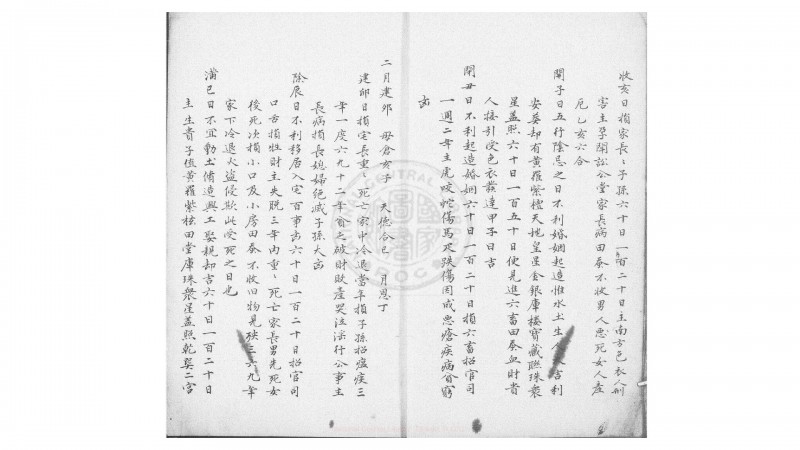 收亥日損家長〻子孫六十日一百二十日主南方色衣人刑
害主爭鬪訟公堂家長病田蚕不收男人悪死女人產
厄乙亥六合
開子日五行陰忌之日不利婚姻起造惟水土生人吉利
安葬却有黃羅紫檀天地皇星金銀庫樓寶藏聯珠衆
星蓋照六十日一百五十日便見進六畜田蚕血財貴
人接引受色衣發達甲子日吉
閉丑日不利起造婚姻六十日一百二十日損六畜招官司
一週二年主虎咬蛇傷馬死跌傷因成悪瘡疾病貧窮
凶
二月建卯 母倉亥子 天德合巳 月恩丁
建卯日損宅長重〻死亡家中冷退當年損子孫招瘟疾三
年一度六九十二年貧乏破財敗產哭泣淫行公事主
長病損長媳婦絕滅子孫大凶
除辰日不利移居入宅百事凶六十日一百二十日招官司
口舌損牲財主失脫三年內重〻死亡家長男先死女
後死次損小口及小房田蚕不收旧物見殃三六九年
家下冷退火盜侵欺此受死之日也
滿巳日不宜動土修造興工娶親却吉六十日一百二十日
主生貴子俻黃羅紫檀田堂庫珠衆星蓋照乾巽二宮